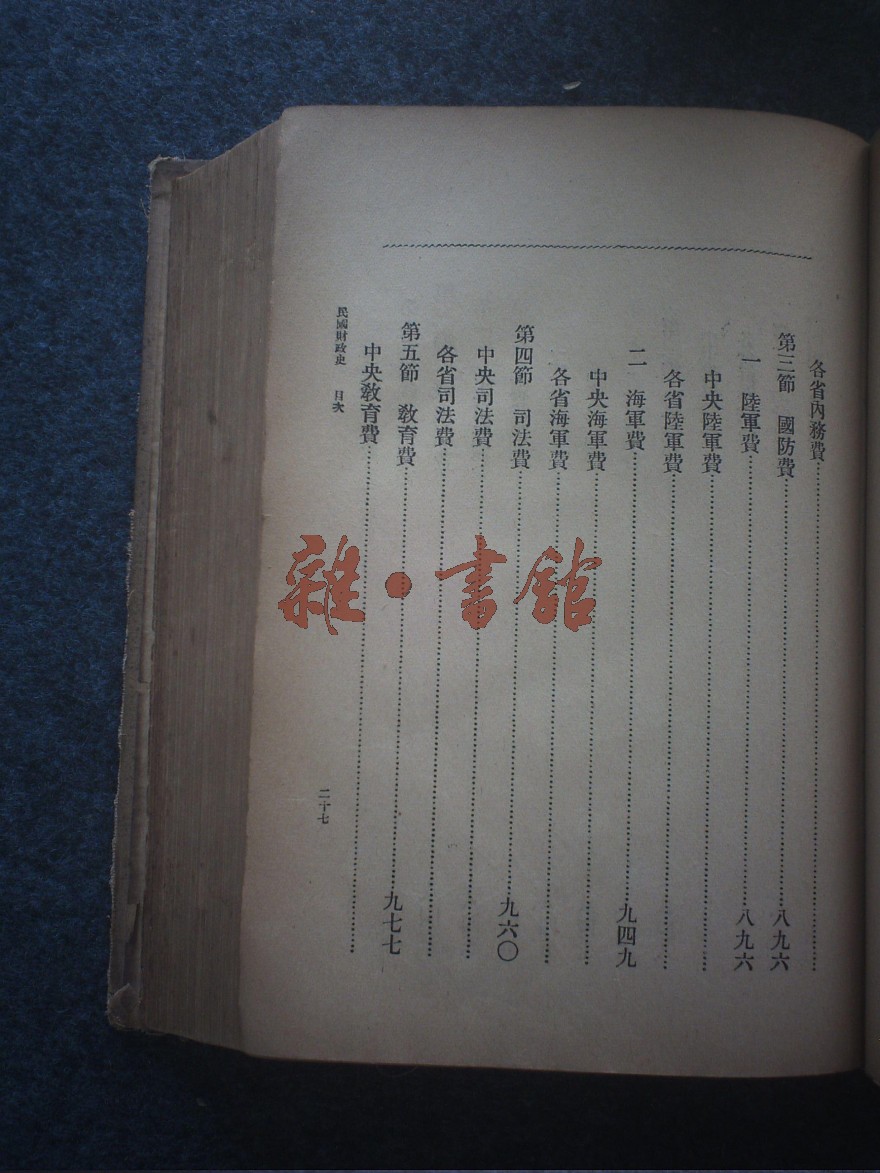 各省內務費
第三節 國防費 八九六
一 陸軍費 八九六
中央陸軍費
各省陸軍費
二 海軍費 九四九
中央海軍費
各省海軍費
第四節 司法費 九六〇
中央司法費
各省司法費
第五節 教育費 九七七
中央教育費
民國財政史 目次 二十七
雜·書館